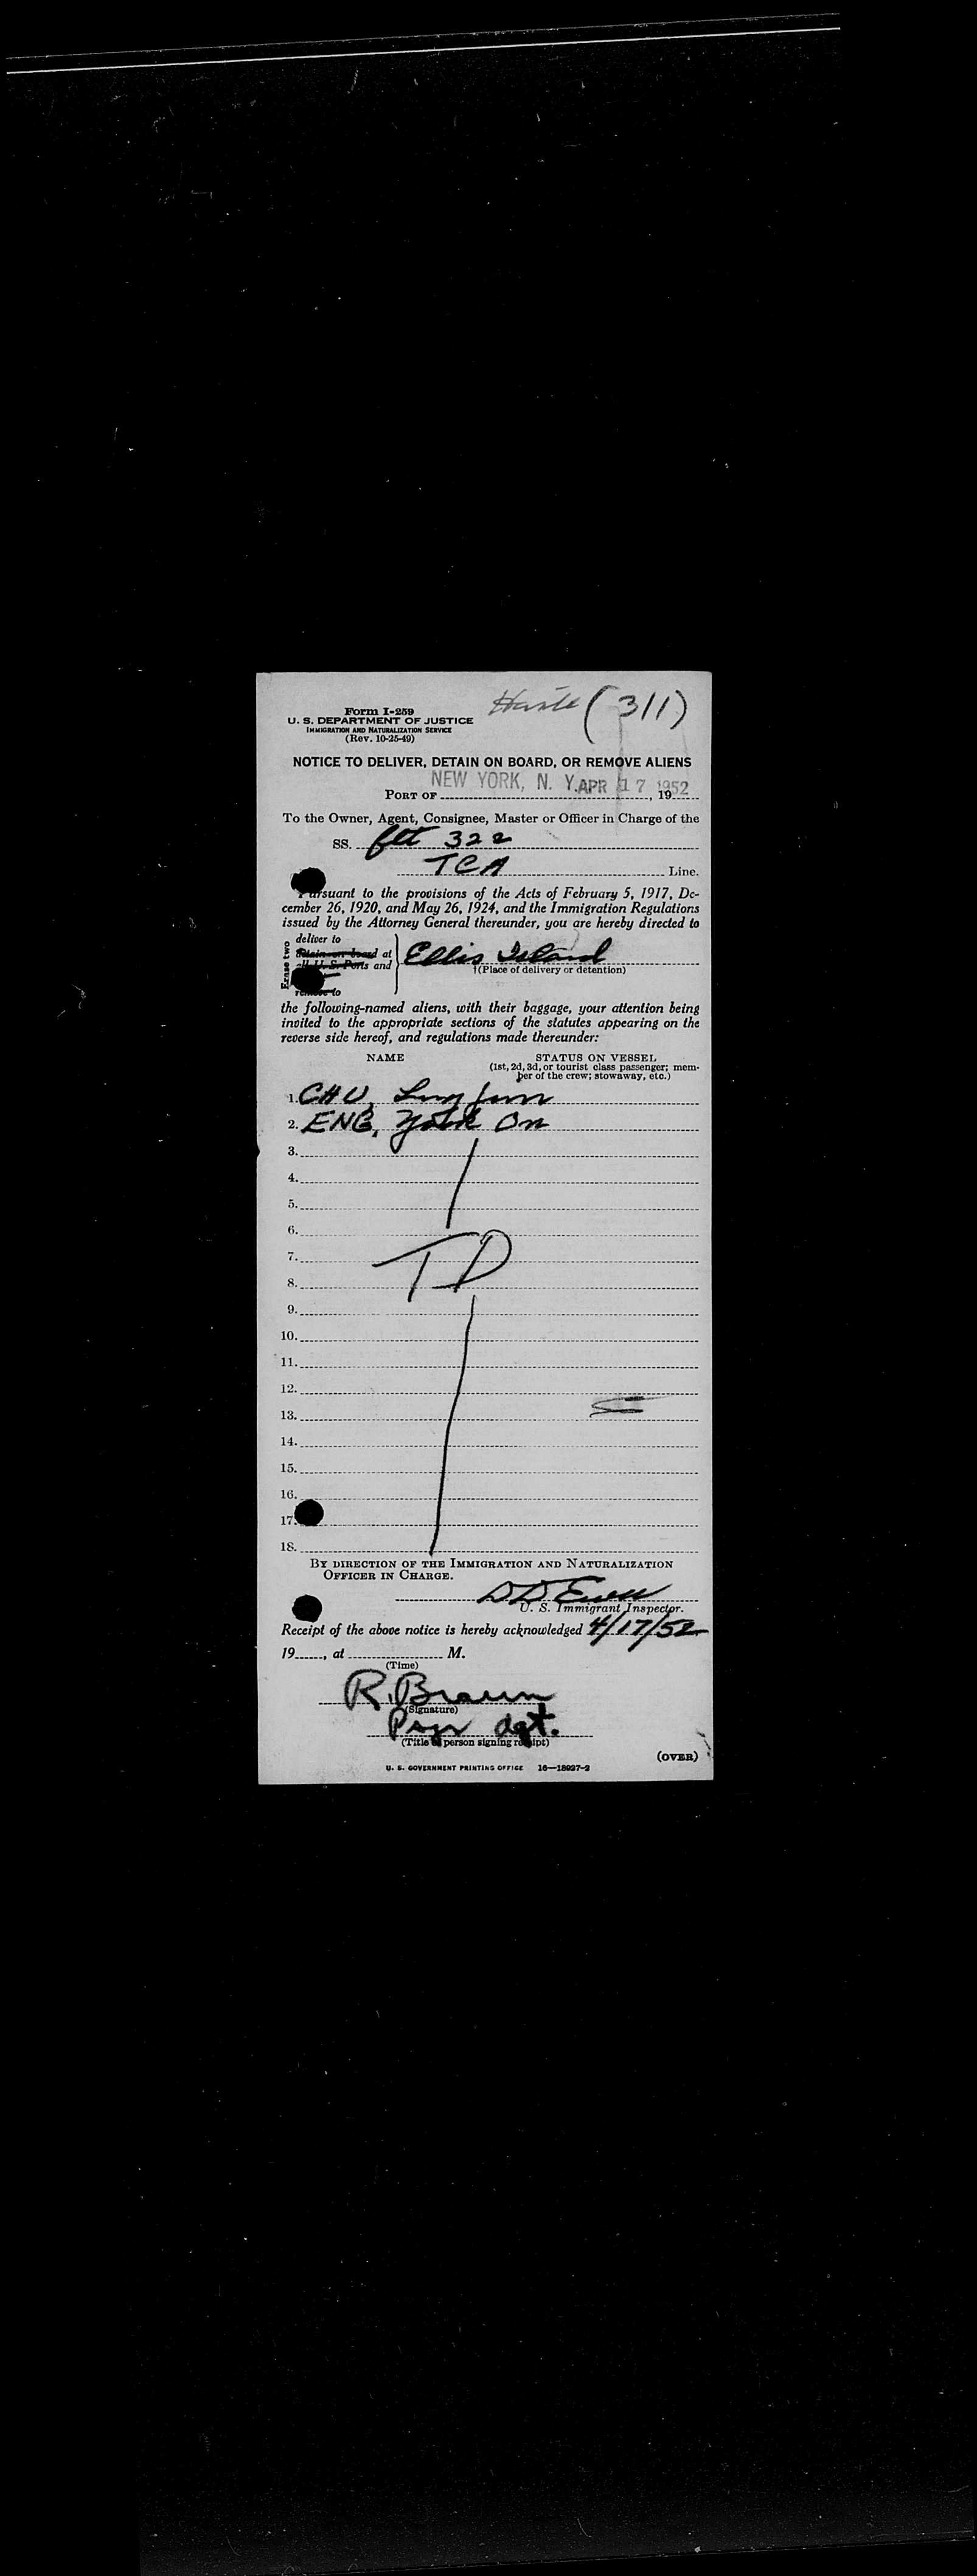 (311)
Form I-259
U. S. DEPARTMENT OF JUSTICE
IMMIGRATION AND NATURALIZATION SERVICE
(Rev. 10-25-49)
NOTICE TO DELIVER, DETAIN ON BOARD, OR REMOVE ALIENS
PORT OF NEW YORK, N. Y. APR 17 1952, 19
To the Owner, Agent, Consignee, Master or Officer in Charge of the
SS. flt 322
TCA Line.
Pursuant to the provisions of the Acts of February 5, 1917, De-
cember 26, 1920, and May 26, 1924, and the Immigration Regulations
issued by the Attorney General thereunder, you are hereby directed to
Erase two
deliver to
detain on board at
all U. S. Ports and
remove to
Ellis Island
†(Place of delivery or detention)
the following-named aliens, with their baggage, your attention being
invited to the appropriate sections of the statutes appearing on the
reverse side hereof, and regulations made thereunder:
NAME STATUS ON VESSEL
(1st, 2d, 3d, or tourist class passenger; mem-
ber of the crew; stowaway, etc.)
1. CHU,
2. ENG, York On
3.
4.
5.
6.
7. TD
8.
9.
10.
11.
12.
13.
14.
15.
16.
17.
18.
BY DIRECTION OF THE IMMIGRATION AND NATURALIZATION
OFFICER IN CHARGE.
U. S. Immigrant Inspector.
Receipt of the above notice is hereby acknowledged 4/17/52
19, at M.
(Time)
R. Braun
(Signature)
Psgr agt.
(Title of person signing receipt)
(OVER)
U. S. GOVERNMENT PRINTING OFFICE 16—18927-2